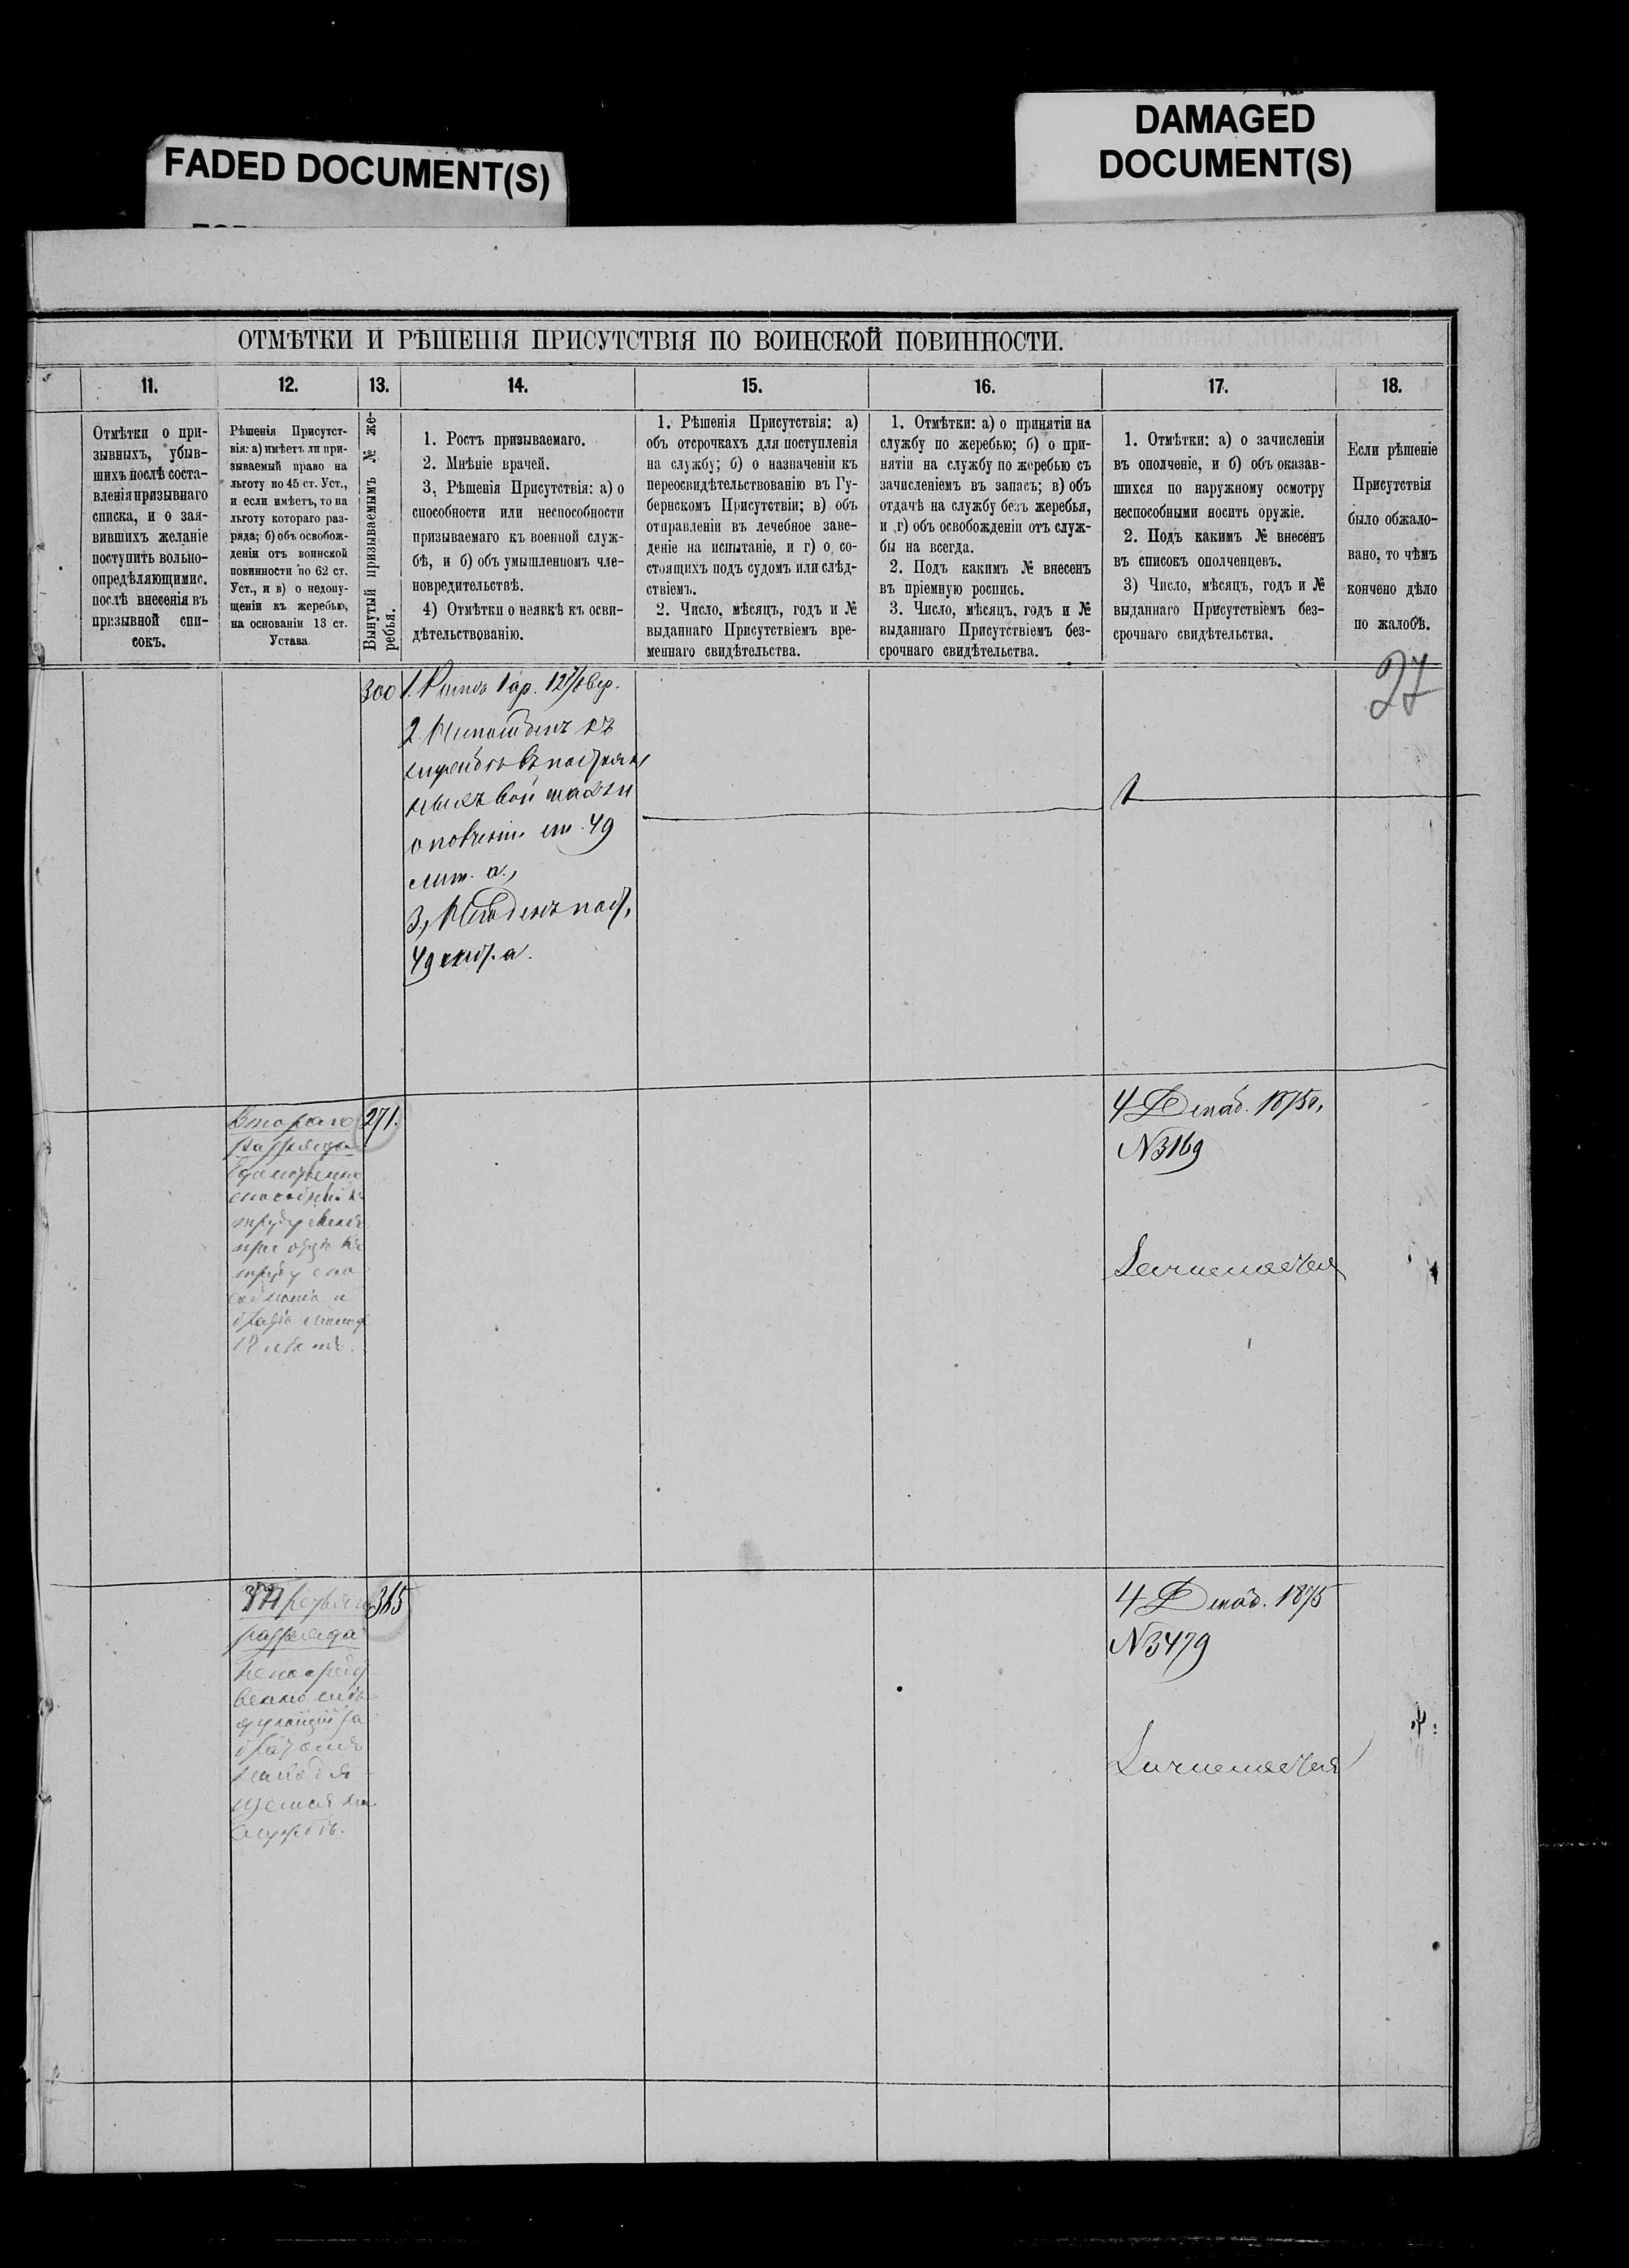 FADED DOCUMENT(S)
DAMAGED
DOCUMENT(S)
ОТМѢТКИ И РѢШЕНІЯ ПРИСУТСТВІЯ ПО ВОИНСКОЙ ПОВИННОСТИ.
11.
12.
13.
14.
15.
16.
17.
18.
Отмѣтки о при-
зывныхъ, убыв-
шихъ послѣ соста-
вленія призывнаго
списка, и о зая-
вившихъ желаніе
поступить вольно-
опредѣляющимис.
послѣ внесенія въ
призывной спи-
сокъ.
Рѣшенія Присутст-
вія: а) имѣетъ ли при-
зываемый право на
льготу по 45 ст. Уст.,
и если имѣетъ, то на
льготу котораго раз-
ряда; б) объ освобож-
деніи отъ воинской
повинности по 62 ст.
Уст., и в) о недопу-
щеніи къ жеребью,
на основаніи 13 ст.
Устава
Вынутый призываемымъ № же-
ребья.
1. Ростъ призываемаго.
2. Мнѣніе врачей.
3. Рѣшенія Присутствія: а) о
способности или неспособности
призываемаго къ военной служ-
бѣ, и б) объ умышленномъ чле-
новредительствѣ.
4) Отмѣтки о неявкѣ къ осви-
дѣтельствованію.
1. Рѣшенія Присутствія: а)
объ отсрочкахъ для поступленія
на службу; б) о назначеніи къ
переосвидѣтельствованію въ Гу-
бернскомъ Присутствіи; в) объ
отправленіи въ лечебное заве-
деніе на испытаніе, и г) о со-
стоящихъ подъ судомъ или слѣд-
ствіемъ.
2. Число, мѣсяцъ, годъ и №
выданнаго Присутствіемъ вре-
меннаго свидѣтельства.
1. Отмѣтки: а) о принятіи на
службу по жеребью; б) о при-
нятіи на службу по жеребью съ
зачисленіемъ въ запасъ; в) объ
отдачѣ на службу безъ жеребья,
и г) объ освобожденіи отъ служ-
бы на всегда.
2. Подъ какимъ № внесенъ
въ пріемную роспись.
3. Число, мѣсяцъ, годъ и №
выданнаго Присутствіемъ без-
срочнаго свидѣтельства.
1. Отмѣтки: а) о зачисленіи
въ ополченіе, и б) объ оказав-
шихся по наружному осмотру
неспособными носить оружіе.
2. Подъ какимъ № внесенъ
въ списокъ ополченцевъ.
3) Число, мѣсяцъ, годъ и №
выданнаго Присутствіемъ без-
срочнаго свидѣтельства.
Если рѣшеніе
Присутствія
было обжало-
вано, то чѣмъ
кончено дѣло
по жалобѣ.
27
300
1. Ростъ 1 ар. 12
вер.
2.
къ
ст. 49
лит. а.,
3,
49 лит. а.
Втораго
разряда
271.
12 лѣтъ.
4 Декаб. 1875 г.
№ 3169
Третьяго
разряда
Непосредст
венно слѣ
дующій за
братомъ
находя
щемся на
службѣ.
365
4 Декаб. 1875
№ 3479